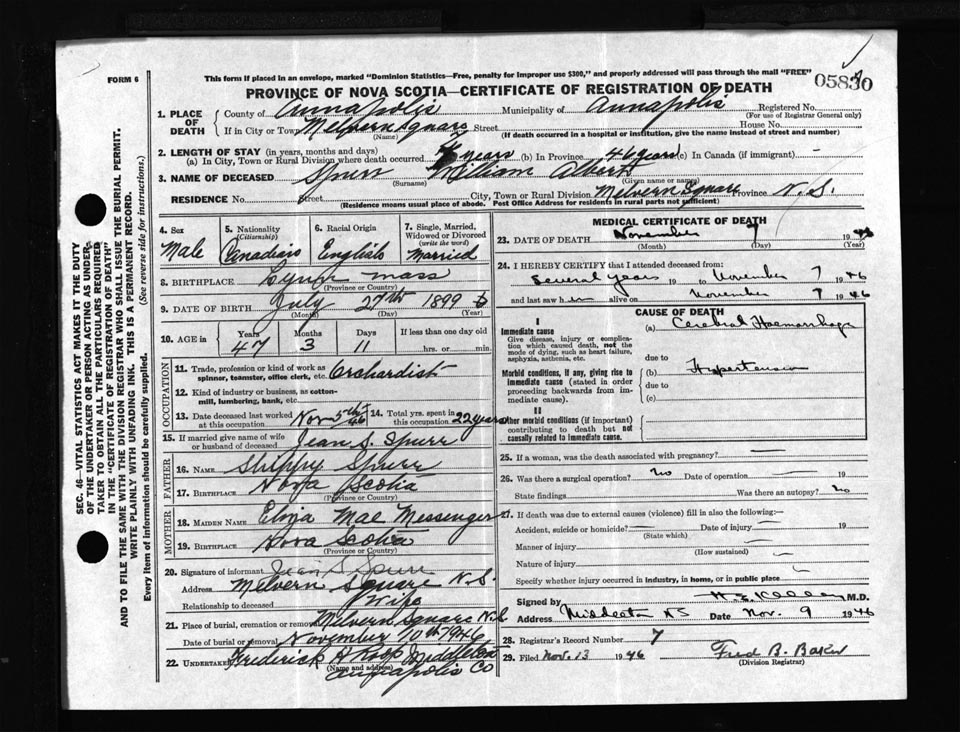 FORM 6
This form if placed in an envelope, marked "Dominion Statistics—Free, penalty for improper use $300," and properly addressed will pass through the mail "FREE"
PROVINCE OF NOVA SCOTIA—CERTIFICATE OF REGISTRATION OF DEATH
1. PLACE OF DEATH County of Annapolis Municipality of Annapolis Registered No.
(For use of Registrar General only)
If in City or Town Melvern Square Street House No.
(Name) (If death occurred in a hospital or institution, give the name instead of street and number)
2. LENGTH OF STAY (in years, months and days)
(a) In City, Town or Rural Division where death occurred years (b) In Province 46 years (c) In Canada (if immigrant) —
3. NAME OF DECEASED Spurr William Albert
(Surname) (Given name or names)
RESIDENCE No. Street City, Town or Rural Division Melvern Square Province N.S.
(Residence means usual place of abode. Post Office Address for residents in rural parts not sufficient)
4. Sex Male
5. Nationality (Citizenship) Canadian
6. Racial Origin English
7. Single, Married, Widowed or Divorced (write the word) Married
8. BIRTHPLACE Lynn Mass
(Province or Country)
9. DATE OF BIRTH July 27th 1899
(Month) (Day) (Year)
10. AGE in Years 47 Months 3 Days 11 If less than one day old hrs. or min.
OCCUPATION
11. Trade, profession or kind of work as spinner, teamster, office clerk, etc. Orchardist
12. Kind of industry or business, as cotton-mill, lumbering, bank, etc.
13. Date deceased last worked at this occupation Nov 5th 46
14. Total yrs. spent in this occupation 22 years
15. If married give name of wife or husband of deceased Jean S. Spurr
FATHER
16. NAME Shippy Spurr
17. BIRTHPLACE Nova Scotia
(Province or Country)
MOTHER
18. MAIDEN NAME Mae Messenger
19. BIRTHPLACE Nova Scotia
(Province or Country)
20. Signature of informant Jean S Spurr
Address Melvern Square N.S.
Relationship to deceased Wife
21. Place of burial, cremation or removal Melvern Square N.S
Date of burial or removal November 10th 1946
22. UNDERTAKER Frederick Middleton
(Name and address) Annapolis Co
MEDICAL CERTIFICATE OF DEATH
23. DATE OF DEATH November 7 1946
(Month) (Day) (Year)
24. I HEREBY CERTIFY that I attended deceased from:
Several years 19 to November 7 1946
and last saw h alive on November 7 1946
CAUSE OF DEATH
I
Immediate cause
Give disease, injury or complication which caused death, not the mode of dying, such as heart failure, asphyxia, asthenia, etc.
(a) Cerebral Haemorrhage
due to
Morbid conditions, if any, giving rise to immediate cause (stated in order proceeding backwards from immediate cause).
(b) Hypertension
due to
(c)
II
Other morbid conditions (if important) contributing to death but not causally related to immediate cause.
25. If a woman, was the death associated with pregnancy? —
26. Was there a surgical operation? no Date of operation — 19
State findings Was there an autopsy? no
27. If death was due to external causes (violence) fill in also the following:—
Accident, suicide or homicide? — Date of injury — 19
(State which)
Manner of injury
(How sustained)
Nature of injury
Specify whether injury occurred in industry, in home, or in public place
Signed by M.D.
Address Middleton NS Date Nov. 9 1946
28. Registrar's Record Number 7
29. Filed Nov. 13 1946 Fred B. Baker
(Division Registrar)
SEC. 46—VITAL STATISTICS ACT MAKES IT THE DUTY
OF THE UNDERTAKER OR PERSON ACTING AS UNDER-
TAKER TO OBTAIN ALL THE PARTICULARS REQUIRED
IN THE "CERTIFICATE OF REGISTRATION OF DEATH"
AND TO FILE THE SAME WITH THE DIVISION REGISTRAR WHO SHALL ISSUE THE BURIAL PERMIT.
WRITE PLAINLY WITH UNFADING INK. THIS IS A PERMANENT RECORD.
Every item of information should be carefully supplied. (See reverse side for instructions.)